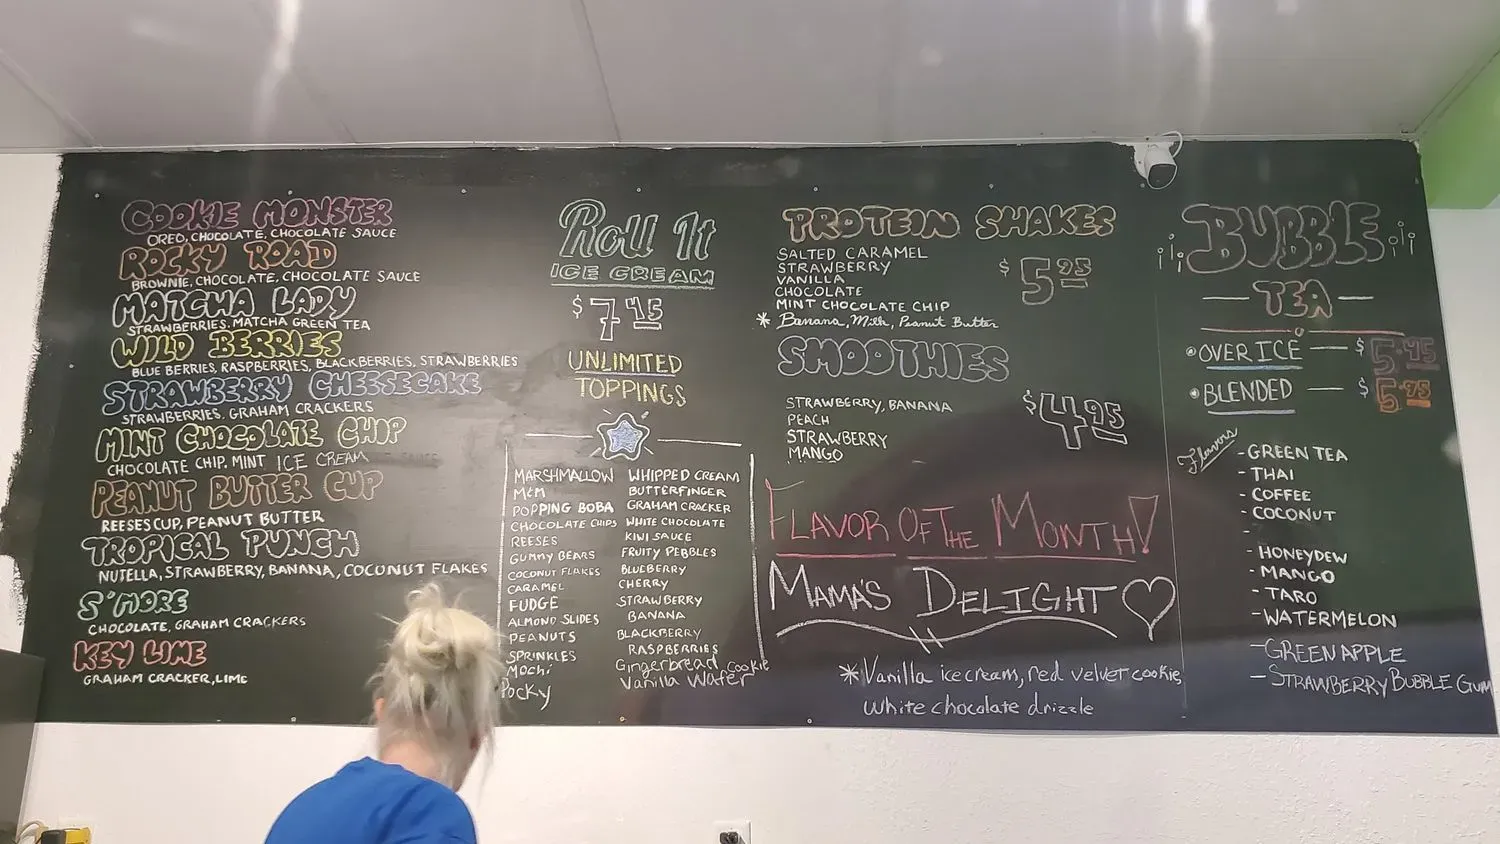 COOKIE MONSTER
OREO, CHOCOLATE, CHOCOLATE SAUCE
ROCKY ROAD
BROWNIE, CHOCOLATE, CHOCOLATE SAUCE
MATCHA LADY
STRAWBERRIES, MATCHA GREEN TEA
WILD BERRIES
BLUE BERRIES, RASPBERRIES, BLACKBERRIES, STRAWBERRIES
STRAWBERRY CHEESECAKE
STRAWBERRIES, GRAHAM CRACKERS
MINT CHOCOLATE CHIP
CHOCOLATE CHIP, MINT ICE CREAM
PEANUT BUTTER CUP
REESES CUP, PEANUT BUTTER
TROPICAL PUNCH
NUTELLA, STRAWBERRY, BANANA, COCONUT FLAKES
S'MORE
CHOCOLATE, GRAHAM CRACKERS
KEY LIME
GRAHAM CRACKER, LIME
Roll It
ICE CREAM
$7.45
UNLIMITED
TOPPINGS
MARSHMALLOW
M&M
POPPING BOBA
CHOCOLATE CHIPS
REESES
GUMMY BEARS
COCONUT FLAKES
CARAMEL
FUDGE
ALMOND SLIDES
PEANUTS
SPRINKLES
Mochi
Pocky
WHIPPED CREAM
BUTTERFINGER
GRAHAM CRACKER
WHITE CHOCOLATE
KIWI SAUCE
FRUITY PEBBLES
BLUEBERRY
CHERRY
STRAWBERRY
BANANA
BLACKBERRY
RASPBERRIES
Gingerbread cookie
Vanilla Wafer
PROTEIN SHAKES
SALTED CARAMEL
STRAWBERRY
VANILLA
CHOCOLATE
MINT CHOCOLATE CHIP
* Banana, Milk, Peanut Butter
$5.95
SMOOTHIES
STRAWBERRY, BANANA
PEACH
STRAWBERRY
MANGO
$4.95
FLAVOR OF THE MONTH!
MAMA'S DELIGHT
* Vanilla ice cream, red velvet cookie,
white chocolate drizzle
BUBBLE
TEA
OVER ICE — $5.45
BLENDED — $5.95
Flavors
- GREEN TEA
- THAI
- COFFEE
- COCONUT
-
- HONEYDEW
- MANGO
- TARO
- WATERMELON
- GREEN APPLE
- STRAWBERRY BUBBLE GUM